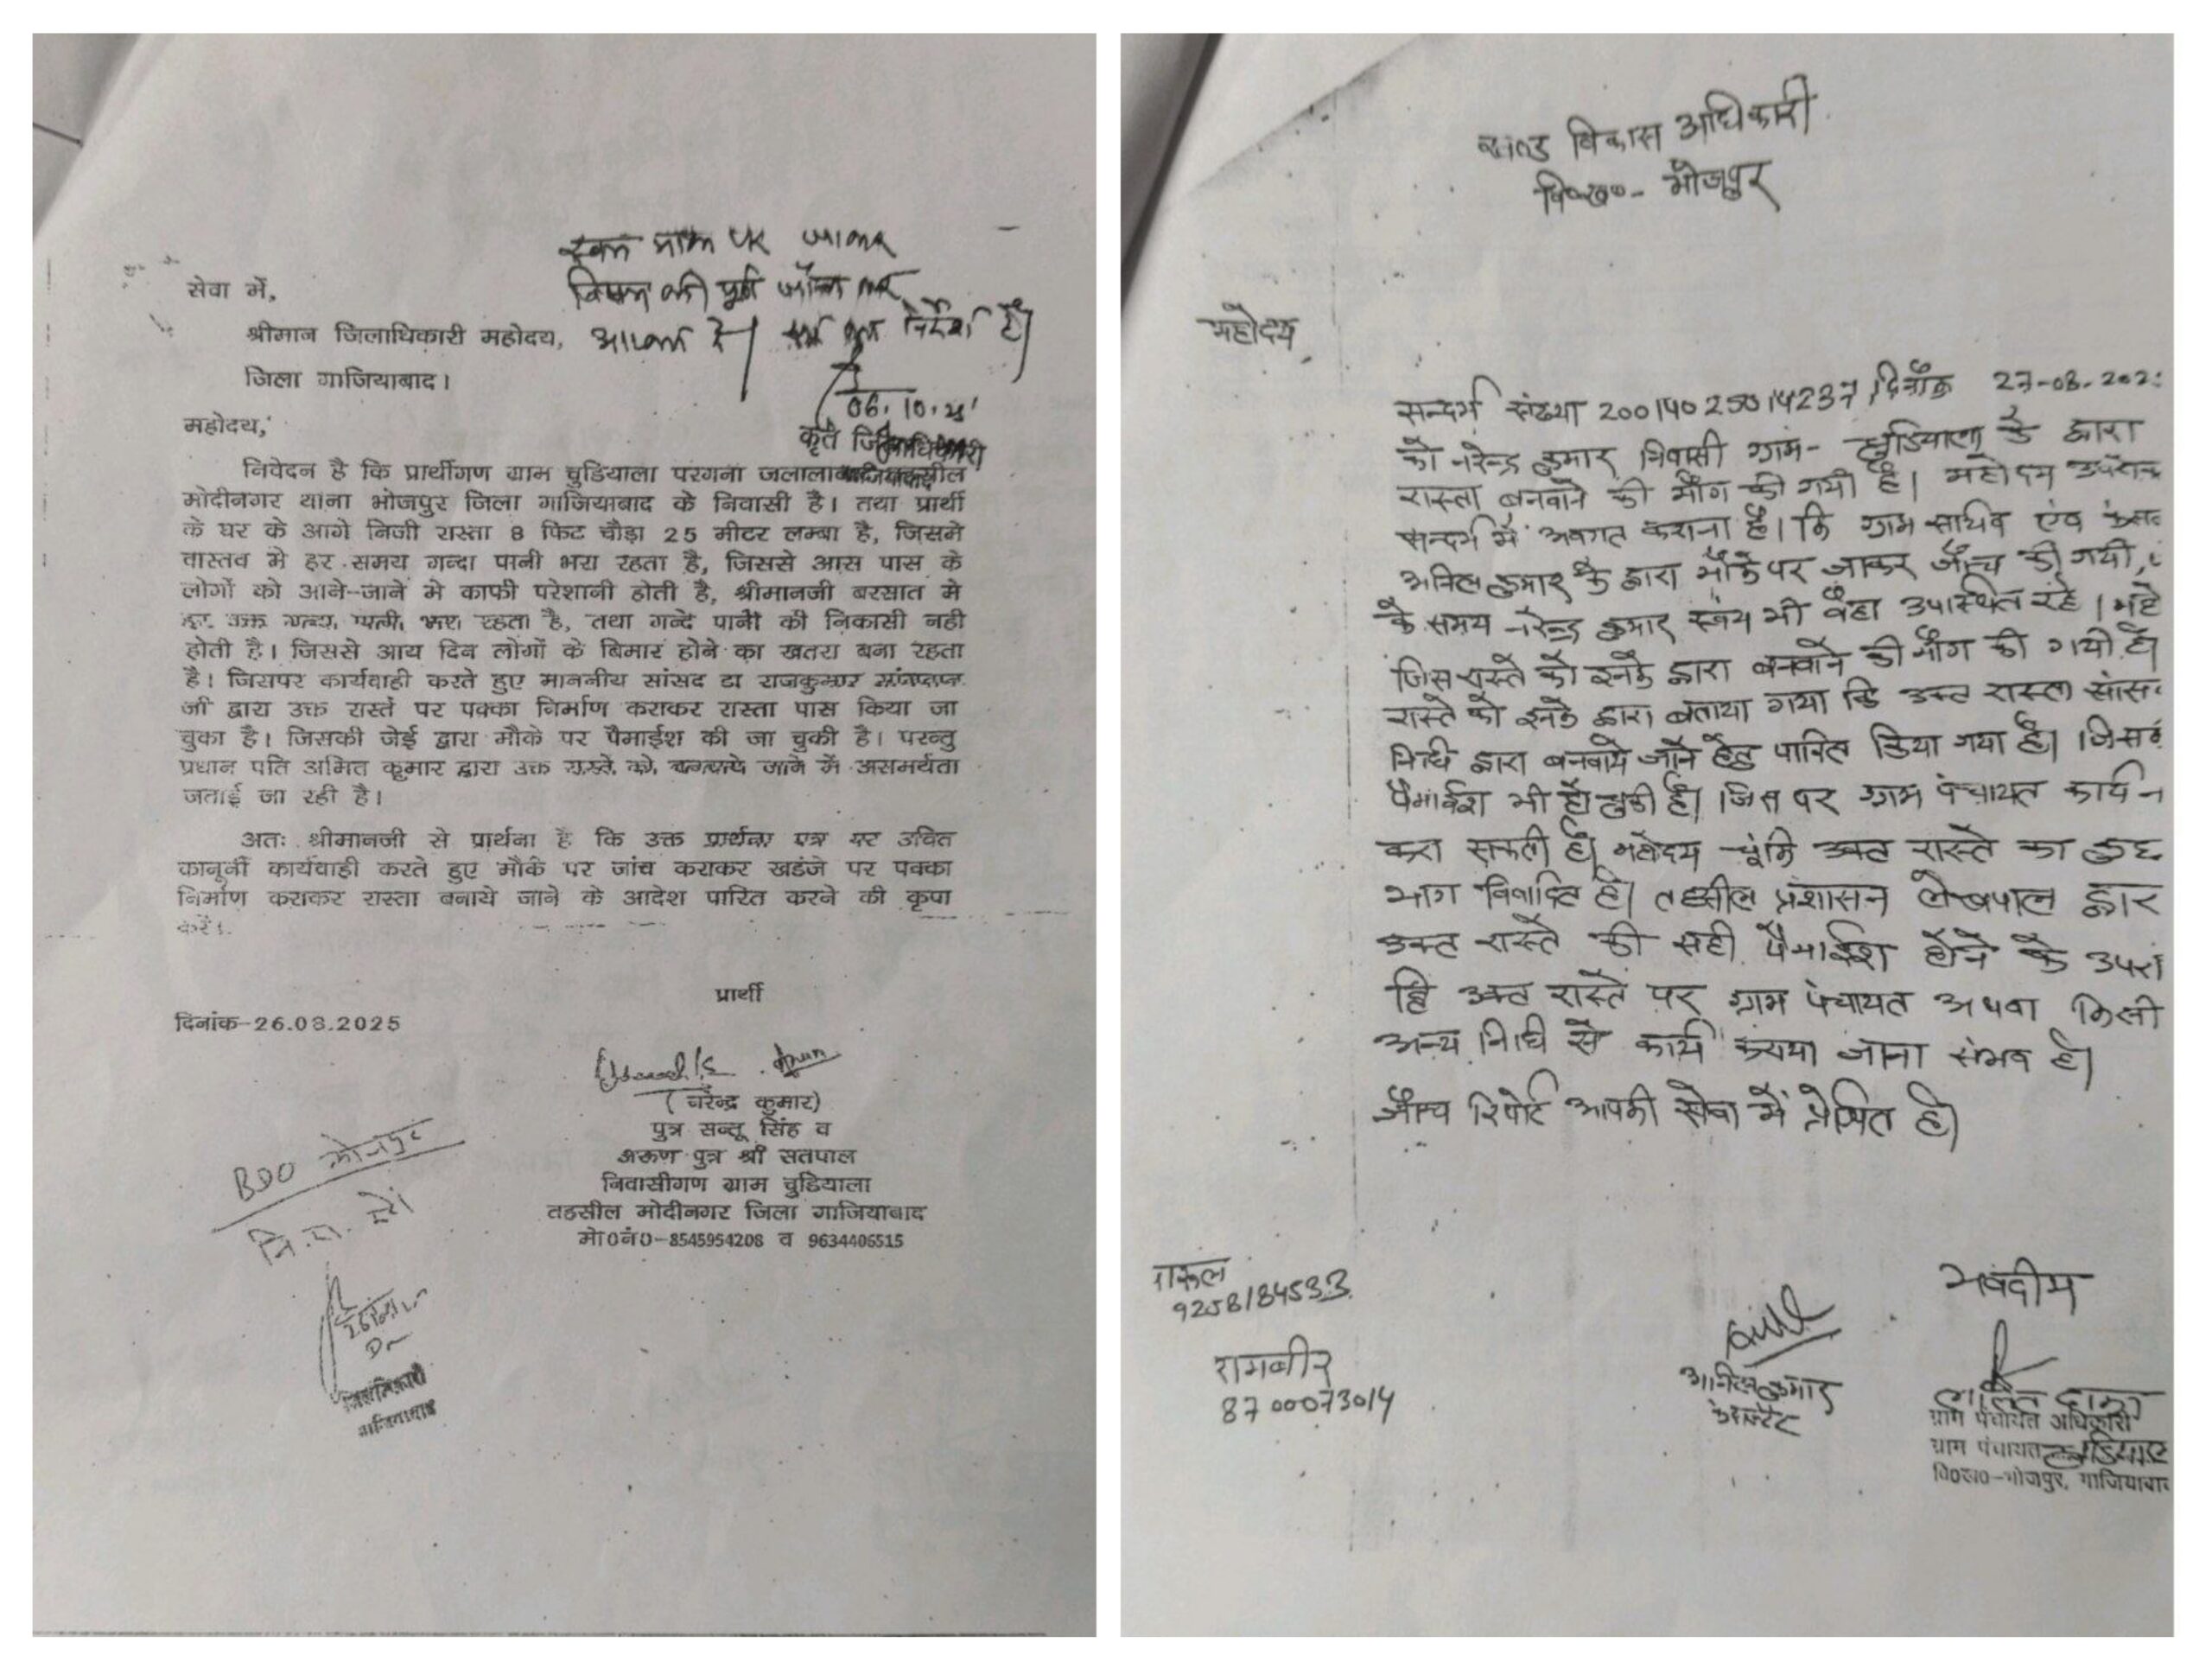 सेवा में,
श्रीमान जिलाधिकारी महोदय,
जिला गाजियाबाद।
महोदय,
पर जाकर
की पूर्ण जाँच कर
आख्या दें। निर्देश है।
06.10.25
कृते जिलाधिकारी
निवेदन है कि प्रार्थीगण ग्राम चुडियाला परगना जलालाबाद तहसील
मोदीनगर थाना भोजपुर जिला गाजियाबाद के निवासी है। तथा प्रार्थी
के घर के आगे निजी रास्ता 8 फिट चौड़ा 25 मीटर लम्बा है, जिसमे
वास्तव मे हर समय गन्दा पानी भरा रहता है, जिससे आस पास के
लोगों को आने-जाने मे काफी परेशानी होती है, श्रीमानजी बरसात मे
उक्त गन्दा पानी भरा रहता है, तथा गन्दे पानी की निकासी नही
होती है। जिससे आय दिन लोगों के बिमार होने का खतरा बना रहता
है। जिसपर कार्यवाही करते हुए माननीय सांसद डा राजकुमार सांगवान
जी द्वारा उक्त रास्ते पर पक्का निर्माण कराकर रास्ता पास किया जा
चुका है। जिसकी जेई द्वारा मौके पर पैमाईश की जा चुकी है। परन्तु
प्रधान पति अमित कुमार द्वारा उक्त रास्ते को बनवाये जाने में असमर्थता
जताई जा रही है।
अतः श्रीमानजी से प्रार्थना है कि उक्त प्रार्थना पत्र पर उचित
कानूनी कार्यवाही करते हुए मौके पर जांच कराकर खडंजे पर पक्का
निर्माण कराकर रास्ता बनाये जाने के आदेश पारित करने की कृपा
करें।
प्रार्थी
दिनांक-26.08.2025
(नरेन्द्र कुमार)
पुत्र सन्तू सिंह व
अरूण पुत्र श्री सतपाल
निवासीगण ग्राम चुडियाला
तहसील मोदीनगर जिला गाजियाबाद
मो0नं0-8545954208 व 9634406515
BDO भोजपुर
जिलाधिकारी
गाजियाबाद
खण्ड विकास अधिकारी
वि०ख०- भोजपुर
महोदय
सन्दर्भ संख्या 20014025014237, दिनाँक 27-08-202
को नरेन्द्र कुमार निवासी ग्राम- चुडियाला के द्वारा
रास्ता बनवाने की माँग की गयी है। महोदय उपरोक्त
सन्दर्भ में अवगत कराना है। कि ग्राम सचिव एंव
अनिल कुमार के द्वारा मौके पर जाकर जाँच की गयी,
के समय नरेन्द्र कुमार स्वंय भी वँहा उपस्थित रहे। महो
जिस रास्ते को इनके द्वारा बनवाने की माँग की गयी है।
रास्ते को इनके द्वारा बताया गया कि उक्त रास्ता सांस
निधि द्वारा बनवाये जाने हेतु पारित किया गया है। जिसकी
पैमाईश भी हो चुकी है। जिस पर ग्राम पंचायत कार्य न
करा सकती है। महोदय चूंकि उक्त रास्ते का कुछ
भाग विवादित है। तहसील प्रंशासन लेखपाल द्वार
उक्त रास्ते की सही पैमाईश होने के उपरा
हि उक्त रास्ते पर ग्राम पंचायत अथवा किसी
अन्य निधि से कार्य कराया जाना संभव है।
जाँच रिपोर्ट आपकी सेवा में प्रेषित है।
भवदीय
9258184533
रामबीर
8700073014
अनिल कुमार
ग्राम पंचायत अधिकारी
ग्राम पंचायत चुडियाला
वि0ख0-भोजपुर, गाजियाबाद